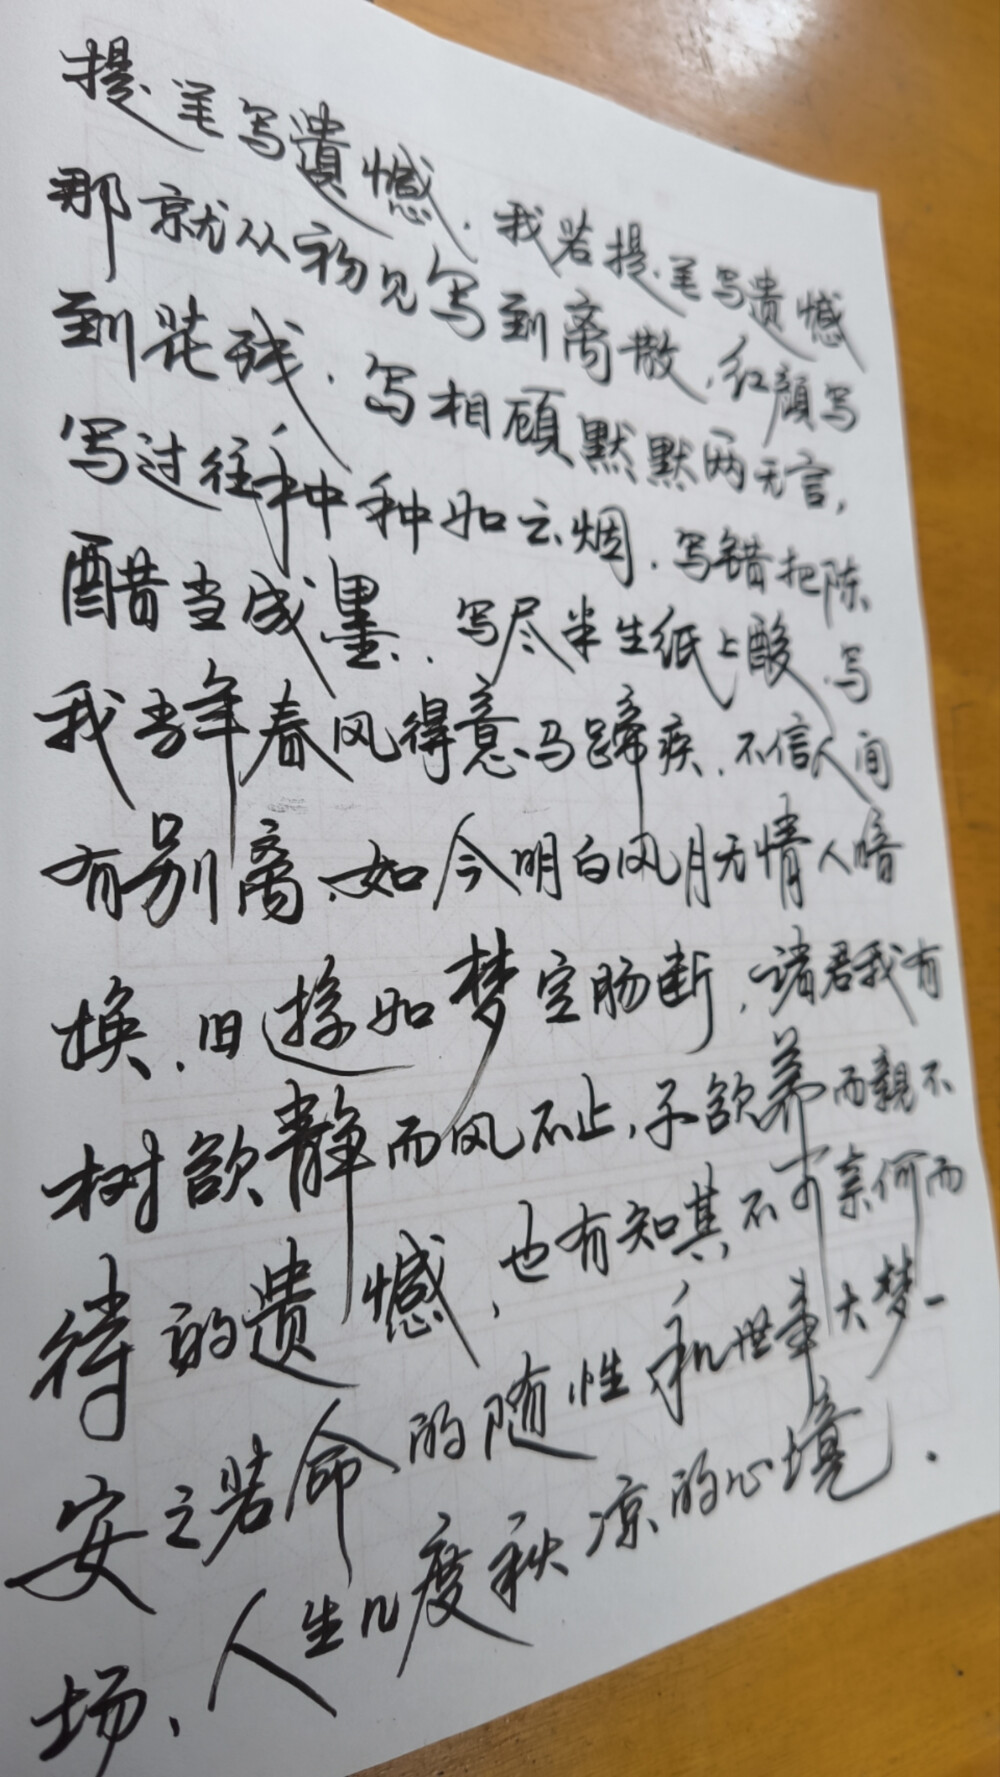 提笔写遗憾.我若提笔写遗憾
那就从初见写到离散,红颜写
到花残.写相顾默默两无言,
写过往种种如云烟.写错把陈
醋当成墨..写尽半生纸上酸.写
我当年春风得意马蹄疾.不信人间
有别离.如今明白风月无情人暗
换.旧游如梦空肠断,诸君我有
树欲静而风不止,子欲养而親不
待的遗憾,也有知其不可奈何而
安之若命的随性和世事大梦一
场、人生几度秋凉的心境.